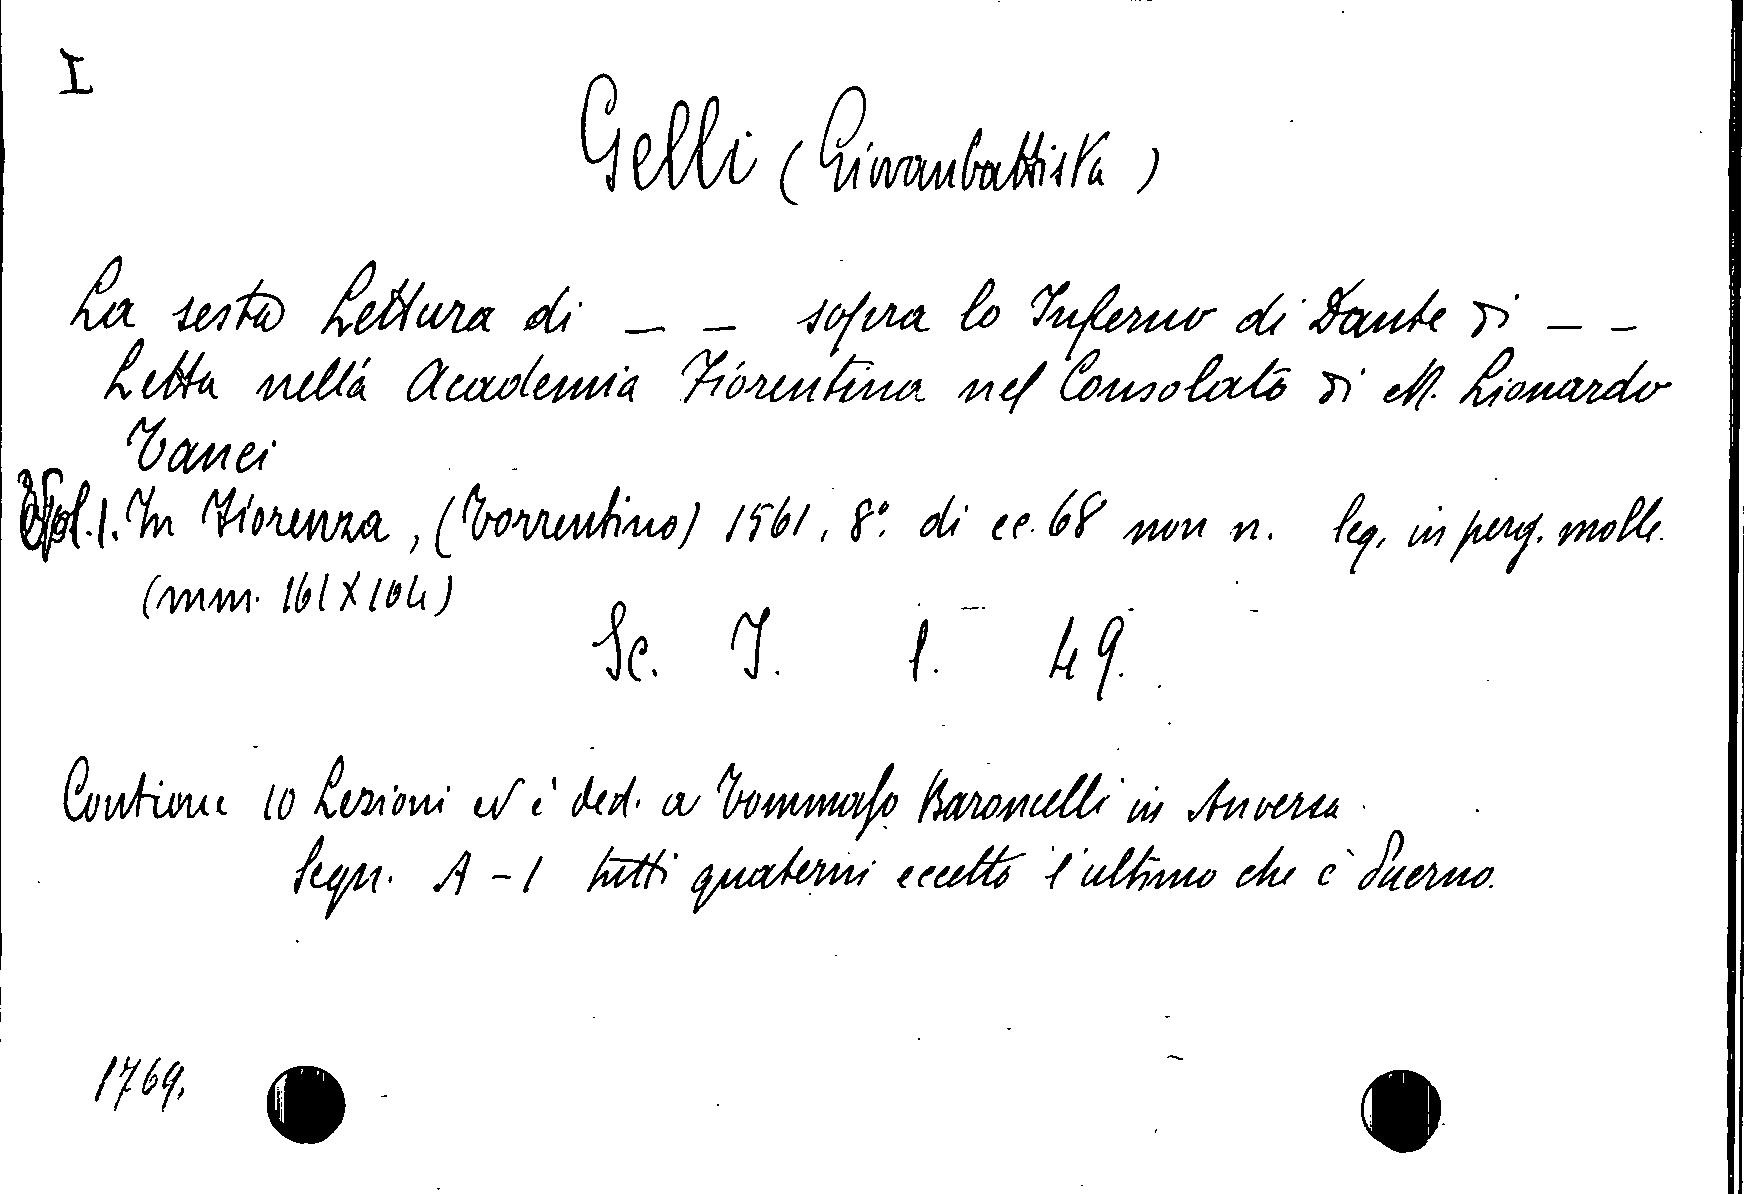 I
Gelli (Giovanbattista)
La sesta Lettura di _ _ sopra lo Inferno di Dante di _ _
Letta nella Academia Fiorentina nel Consolato di M. Lionardo
Tanci
Vol. 1. In Fiorenza, (Torrentino) 1561, 8º di cc. 68 non n. leg. in perg. molle.
(mm. 161 X 104)
Sc. I. l. 49.
Contiene 10 Lezioni ed è ded. a Tommaso Baroncelli in Anversa.
Segn. A - I tutti quaterni eccetto l'ultimo che è duerno.
1769.